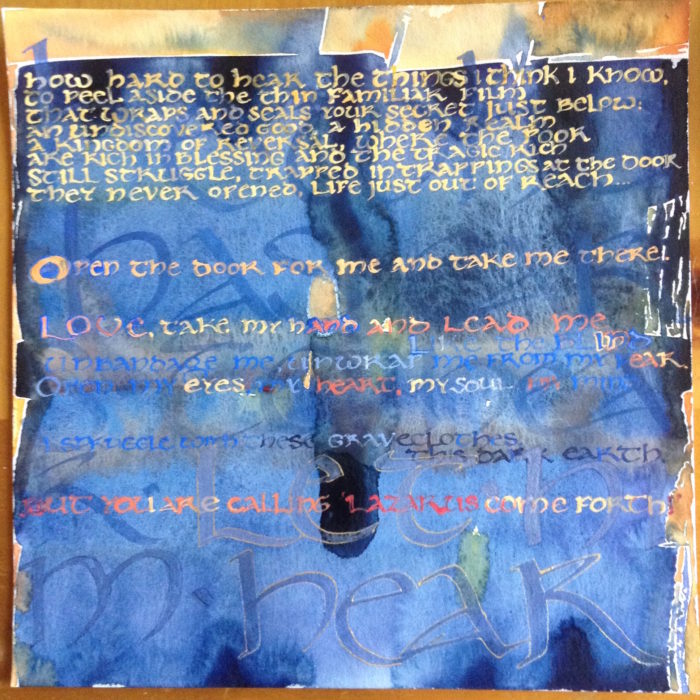 how hard to hear the things I think I know,
to peel aside the thin familiar film
that wraps and seals your secret just below:
an undiscovered good, a hidden realm
a kingdom of reversal, where the poor
are rich in blessing and the tragic rich
still struggle, trapped in trappings at the door
they never opened, life just out of reach...
Open the door for me and take me there.
Love, take my hand and lead me
like the blind
unbandage me, unwrap me from my fear,
Open my eyes, my heart, my soul
I struggle with these graveclothes
this dark earth,
But you are calling 'Lazarus come forth!'
Let
hear